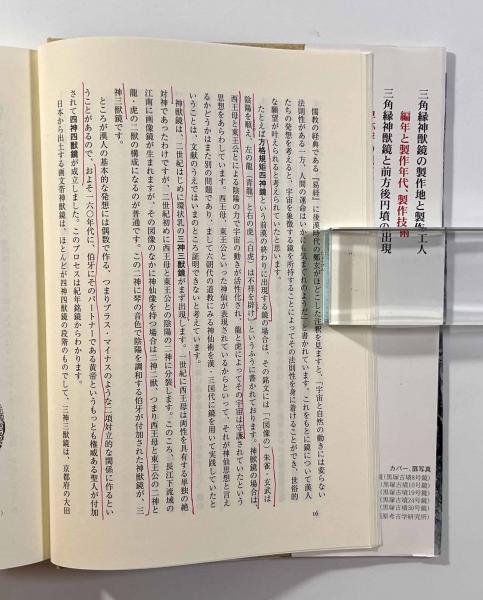 儒教の経典である『易経』に後漢時代の鄭玄がほどこした注釈を見ますと、「宇宙と自然の動きには変らない
法則性がある一方、人間の運命はいかにも気まぐれのようだ」と書かれています。これをもとに鏡について漢人
たちの発想を考えると、宇宙を象徴する鏡を所持することによってその法則性を身に着けることができ、世俗的
な願望が叶えられると考えられていたと思います。
たとえば方格規矩四神鏡という前漢の終わりに出現する鏡の場合は、その銘文には「（図像の）朱雀・玄武は
陰陽を順え、左の龍（青龍）と右の虎（白虎）は不祥を辟け」というふうに書かれております。神獣鏡の場合は、
西王母と東王公とによる陰陽の力で宇宙の動きが活性化され、龍と虎によってその宇宙は守護されていたという
思想をあらわしています。西王母、東王公といった神仙が表現されているからといって、それが神仙思想と言え
るかどうかはまた別の問題であり、まして六朝代の道教にみる神仙術を漢・三国代に鏡を用いて実践していたと
いうことは、文献のうえではいまのところ証明できないと考えています。
神獣鏡は、二世紀はじめに環状乳の三神三獣鏡がまず出現します。一世紀に西王母は両性を具有する単独の絶
対神であったわけですが、二世紀初めに西王母と東王公との陰陽の二神に分装します。このころ、長江下流域の
江南に画像鏡が生まれますが、その図像のなかに神仙像を持つ場合は二神二獣、つまり西王母と東王公の二神と
龍・虎の二獣の構成になるのが普通です。この二神に琴の音色で陰陽を調和する伯牙が付加された神獣鏡が、三
神三獣鏡です。
ところが漢人の基本的な発想には偶数で作る、つまりプラス・マイナスのような二項対立的な関係に作るとい
うことがあるので、およそ一六〇年代に、伯牙にそのパートナーである黄帝というもっとも権威ある聖人が付加
されて四神四獣鏡が成立しました。このプロセスは紀年銘鏡からわかります。
日本から出土する画文帯神獣鏡は、ほとんどが四神四獣鏡の段階のものでして、三神三獣鏡は、京都府の大田
16
三角縁神獣鏡の製作地と製作工人
編年と製作年代、製作技術
三角縁神獣鏡と前方後円墳の出現
カバー、扉写真
(黒塚古墳8号鏡)
(黒塚古墳10号鏡)
(黒塚古墳19号鏡)
(黒塚古墳24号鏡)
(黒塚古墳30号鏡)
原考古学研究所)